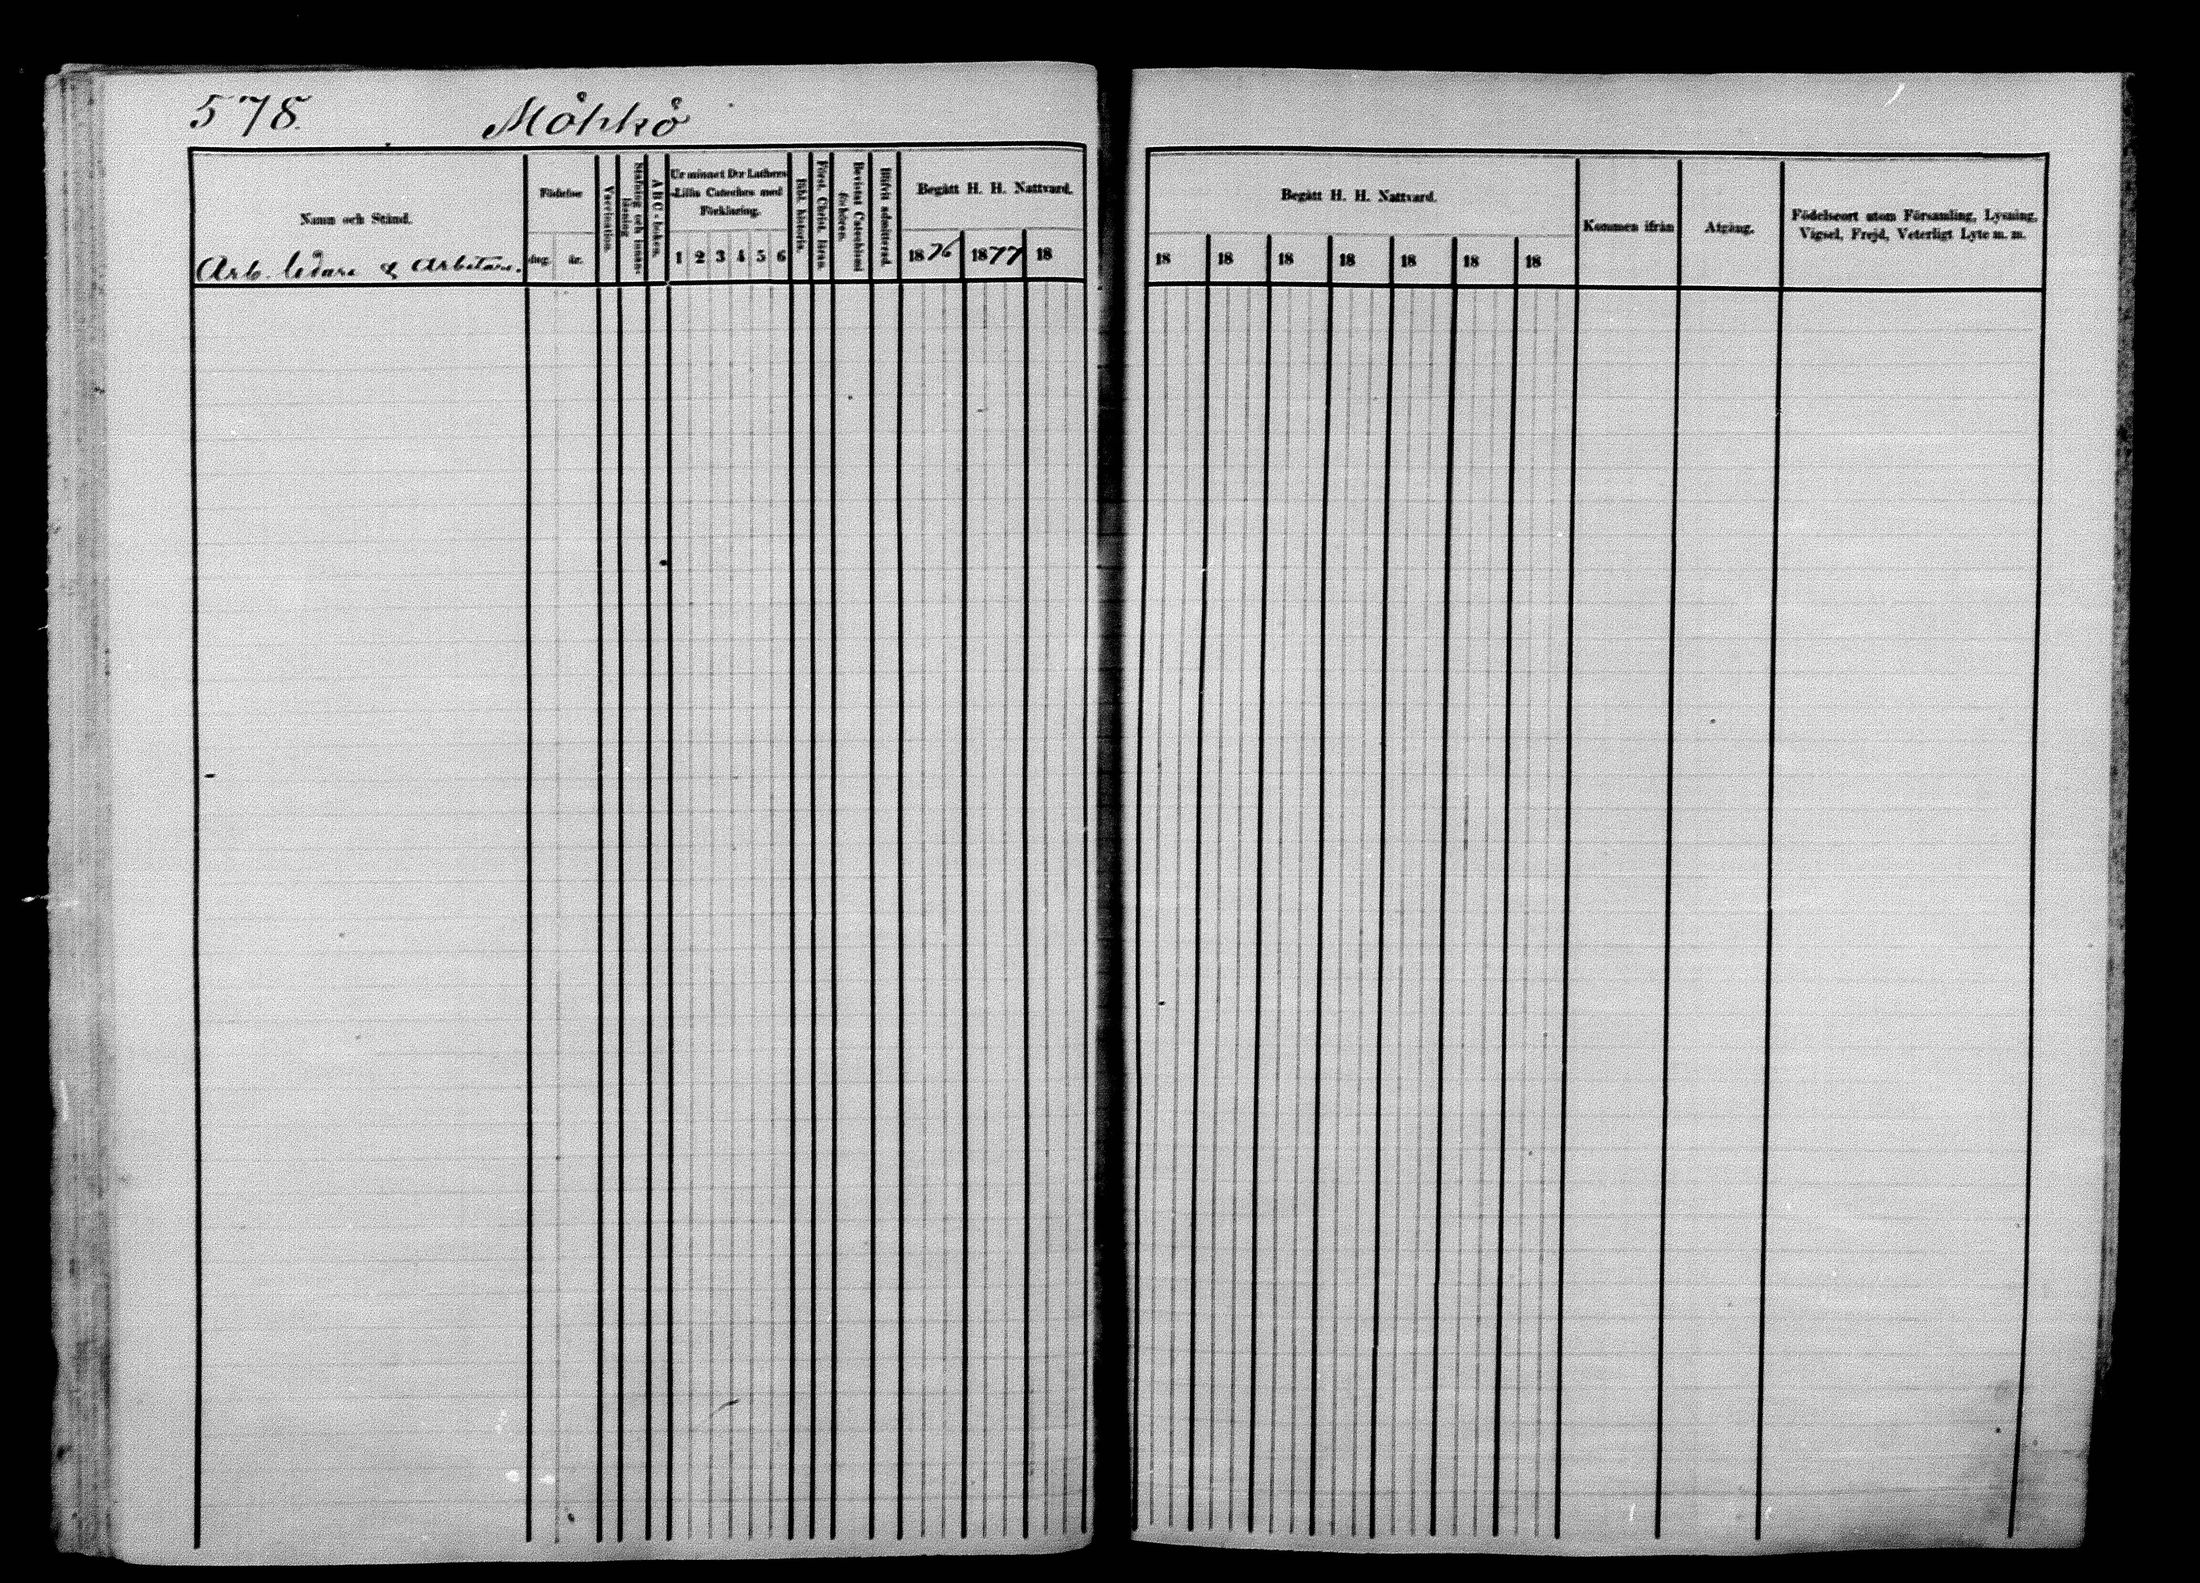 578.
Möhkö
Namn och Stånd.
Arb. ledare & Arbetare.
Födelse
dag. år.
Vaccination.
Stafning och innan-
läsning
ABC-boken.
Ur minnet D:r Luthers
Lilla Cateches med
Förklaring.
1 2 3 4 5 6
Bibl. historia.
Först. Christ. läran.
Bevistat Catechismi
förhören.
Blifvit admitterad.
Begått H. H. Nattvard.
1876 1877 18
Begått H. H. Nattvard.
18 18 18 18 18 18 18
Kommen ifrån
Afgång.
Födelseort utom Församling, Lysning,
Vigsel, Frejd, Veterligt Lyte m. m.